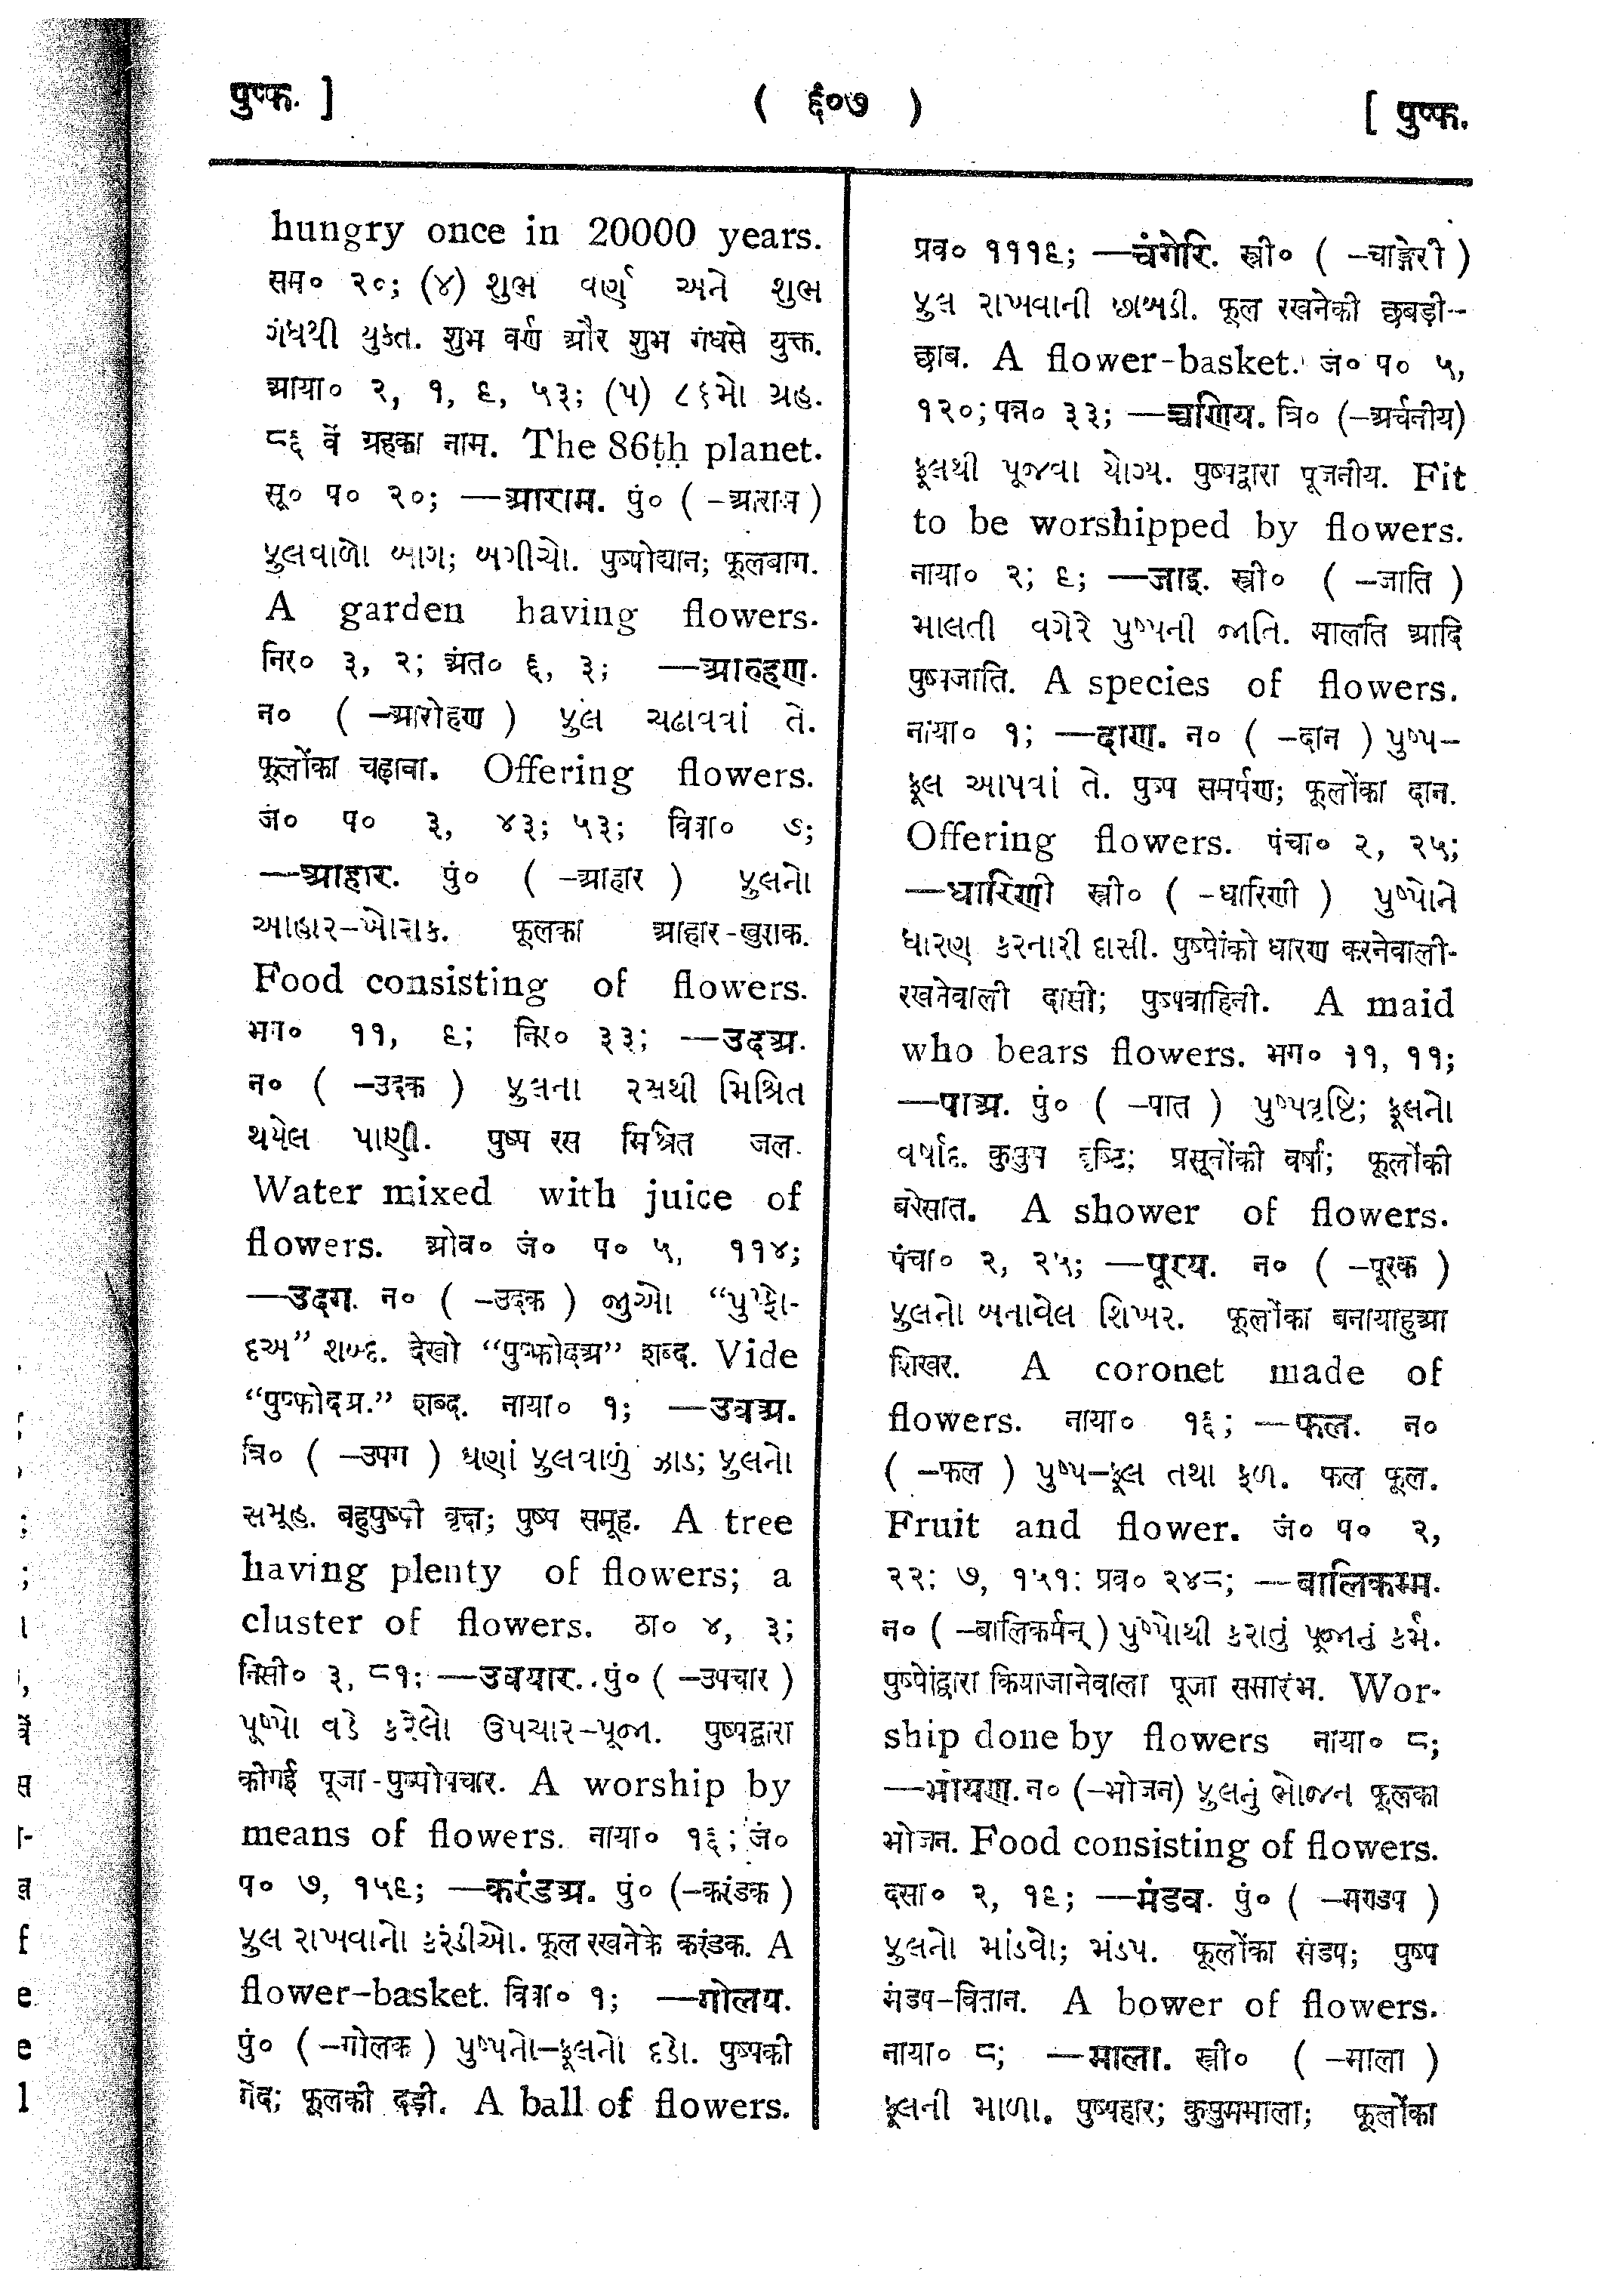 पुप्फ. ] ( ६०७ ) [ पुप्फ.
hungry once in 20000 years.
सम० २०; (४) શુભ વર્ણ અને શુભ
ગંધથી યુક્ત. शुभ वर्ण और शुभ गंधसे युक्त.
आया० २, १, ९, ५३; (૫) ૮૬મો ગ્રહ.
८६ वें ग्रहका नाम. The 86th planet.
सू० प० २०; —आराम. पुं० ( -आराम )
ફુલવાળો બાગ; બગીચો. पुष्पोद्यान; फूलबाग.
A garden having flowers.
निर० ३, २; अंत० ६, ३; —आरुहण.
न० ( -आरोहण ) ફુલ ચઢાવવાં તે.
फूलोंका चढ़ावा. Offering flowers.
जं० प० ३, ४३; ५३; विवा० ७;
—आहार. पुं० ( -आहार ) ફુલનો
આહાર-ખોરાક. फूलका आहार-खुराक.
Food consisting of flowers.
भग० ११, ९; निर० ३३; —उदअ.
न० ( -उदक ) ફુલના રસથી મિશ્રિત
થયેલ પાણી. पुष्प रस मिश्रित जल.
Water mixed with juice of
flowers. ओव० जं० प० ५, ११४;
—उदग. न० ( -उदक ) જુઓ “પુપ્ફો-
દઅ” શબ્દ. देखो “पुप्फोदअ” शब्द. Vide
“पुप्फोदअ.” शब्द. नाया० १; —उवअ.
त्रि० ( -उपग ) ઘણાં ફુલવાળું ઝાડ; ફુલનો
સમૂહ. बहुपुष्पी वृक्ष; पुष्प समूह. A tree
having plenty of flowers; a
cluster of flowers. ठा० ४, ३;
निसी० ३, ८१; —उवयार. पुं० ( -उपचार )
પુષ્પો વડે કરેલો ઉપચાર-પૂજા. पुष्पद्वारा
कीगई पूजा-पुष्पोपचार. A worship by
means of flowers. नाया० १६; जं०
प० ७, १५९; —करंडअ. पुं० (-करंडक )
ફુલ રાખવાનો કરંડીઓ. फूल रखनेके करंडक. A
flower-basket. विवा० १; —गोलय.
पुं० ( -गोलक ) પુષ્પનો-ફૂલનો દડો. पुष्पकी
गेंद; फूलकी दड़ी. A ball of flowers.
प्रव० १११९; —चंगेरि. स्त्री० ( -चाङ्गेरी )
ફુલ રાખવાની છાબડી. फूल रखनेकी छबड़ी-
छाब. A flower-basket. जं० प० ५,
१२०; पन्न० ३३; —च्चणिय. त्रि० (-अर्चनीय)
ફૂલથી પૂજવા યોગ્ય. पुष्पद्वारा पूजनीय. Fit
to be worshipped by flowers.
नाया० २; ९; —जाइ. स्त्री० ( -जाति )
માલતી વગેરે પુષ્પની જાતિ. मालति आदि
पुष्पजाति. A species of flowers.
नाया० १; —दाण. न० ( -दान ) પુષ્પ-
ફૂલ આપવાં તે. पुष्प समर्पण; फूलोंका दान.
Offering flowers. पंचा० २, २५;
—धारिणी स्त्री० ( -धारिणी ) પુષ્પોને
ધારણ કરનારી દાસી. पुष्पोंको धारण करनेवाली-
रखनेवाली दासी; पुष्पवाहिनी. A maid
who bears flowers. भग० ११, ११;
—पाअ. पुं० ( -पात ) પુષ્પવૃષ્ટિ; ફૂલનો
વર્ષાદ. कुसुम वृष्टि; प्रसूनोंकी वर्षा; फूलोंकी
बरेसात. A shower of flowers.
पंचा० २, २५; —पूरय. न० ( -पूरक )
ફુલનો બનાવેલ શિખર. फूलोंका बनायाहुआ
शिखर. A coronet made of
flowers. नाया० १६; —फल. न०
( -फल ) પુષ્પ-ફૂલ તથા ફળ. फल फूल.
Fruit and flower. जं० प० २,
२२; ७, १५१; प्रव० २४८; —बालिकम्म.
न० ( -बालिकर्मन् ) પુષ્પોથી કરાતું પૂજાનું કર્મ.
पुष्पोंद्वारा कियाजानेवाला पूजा ससारंभ. Wor-
ship done by flowers नाया० ८;
—भोयण. न० (-भोजन) ફુલનું ભોજન फूलका
भोजन. Food consisting of flowers.
दसा० २, १९; —मंडव. पुं० ( -मण्डप )
ફુલનો માંડવો; મંડપ. फूलोंका मंडप; पुष्प
मंडप-वितान. A bower of flowers.
नाया० ८; —माला. स्त्री० ( -माला )
ફૂલની માળા. पुष्पहार; कुसुममाला; फूलोंका